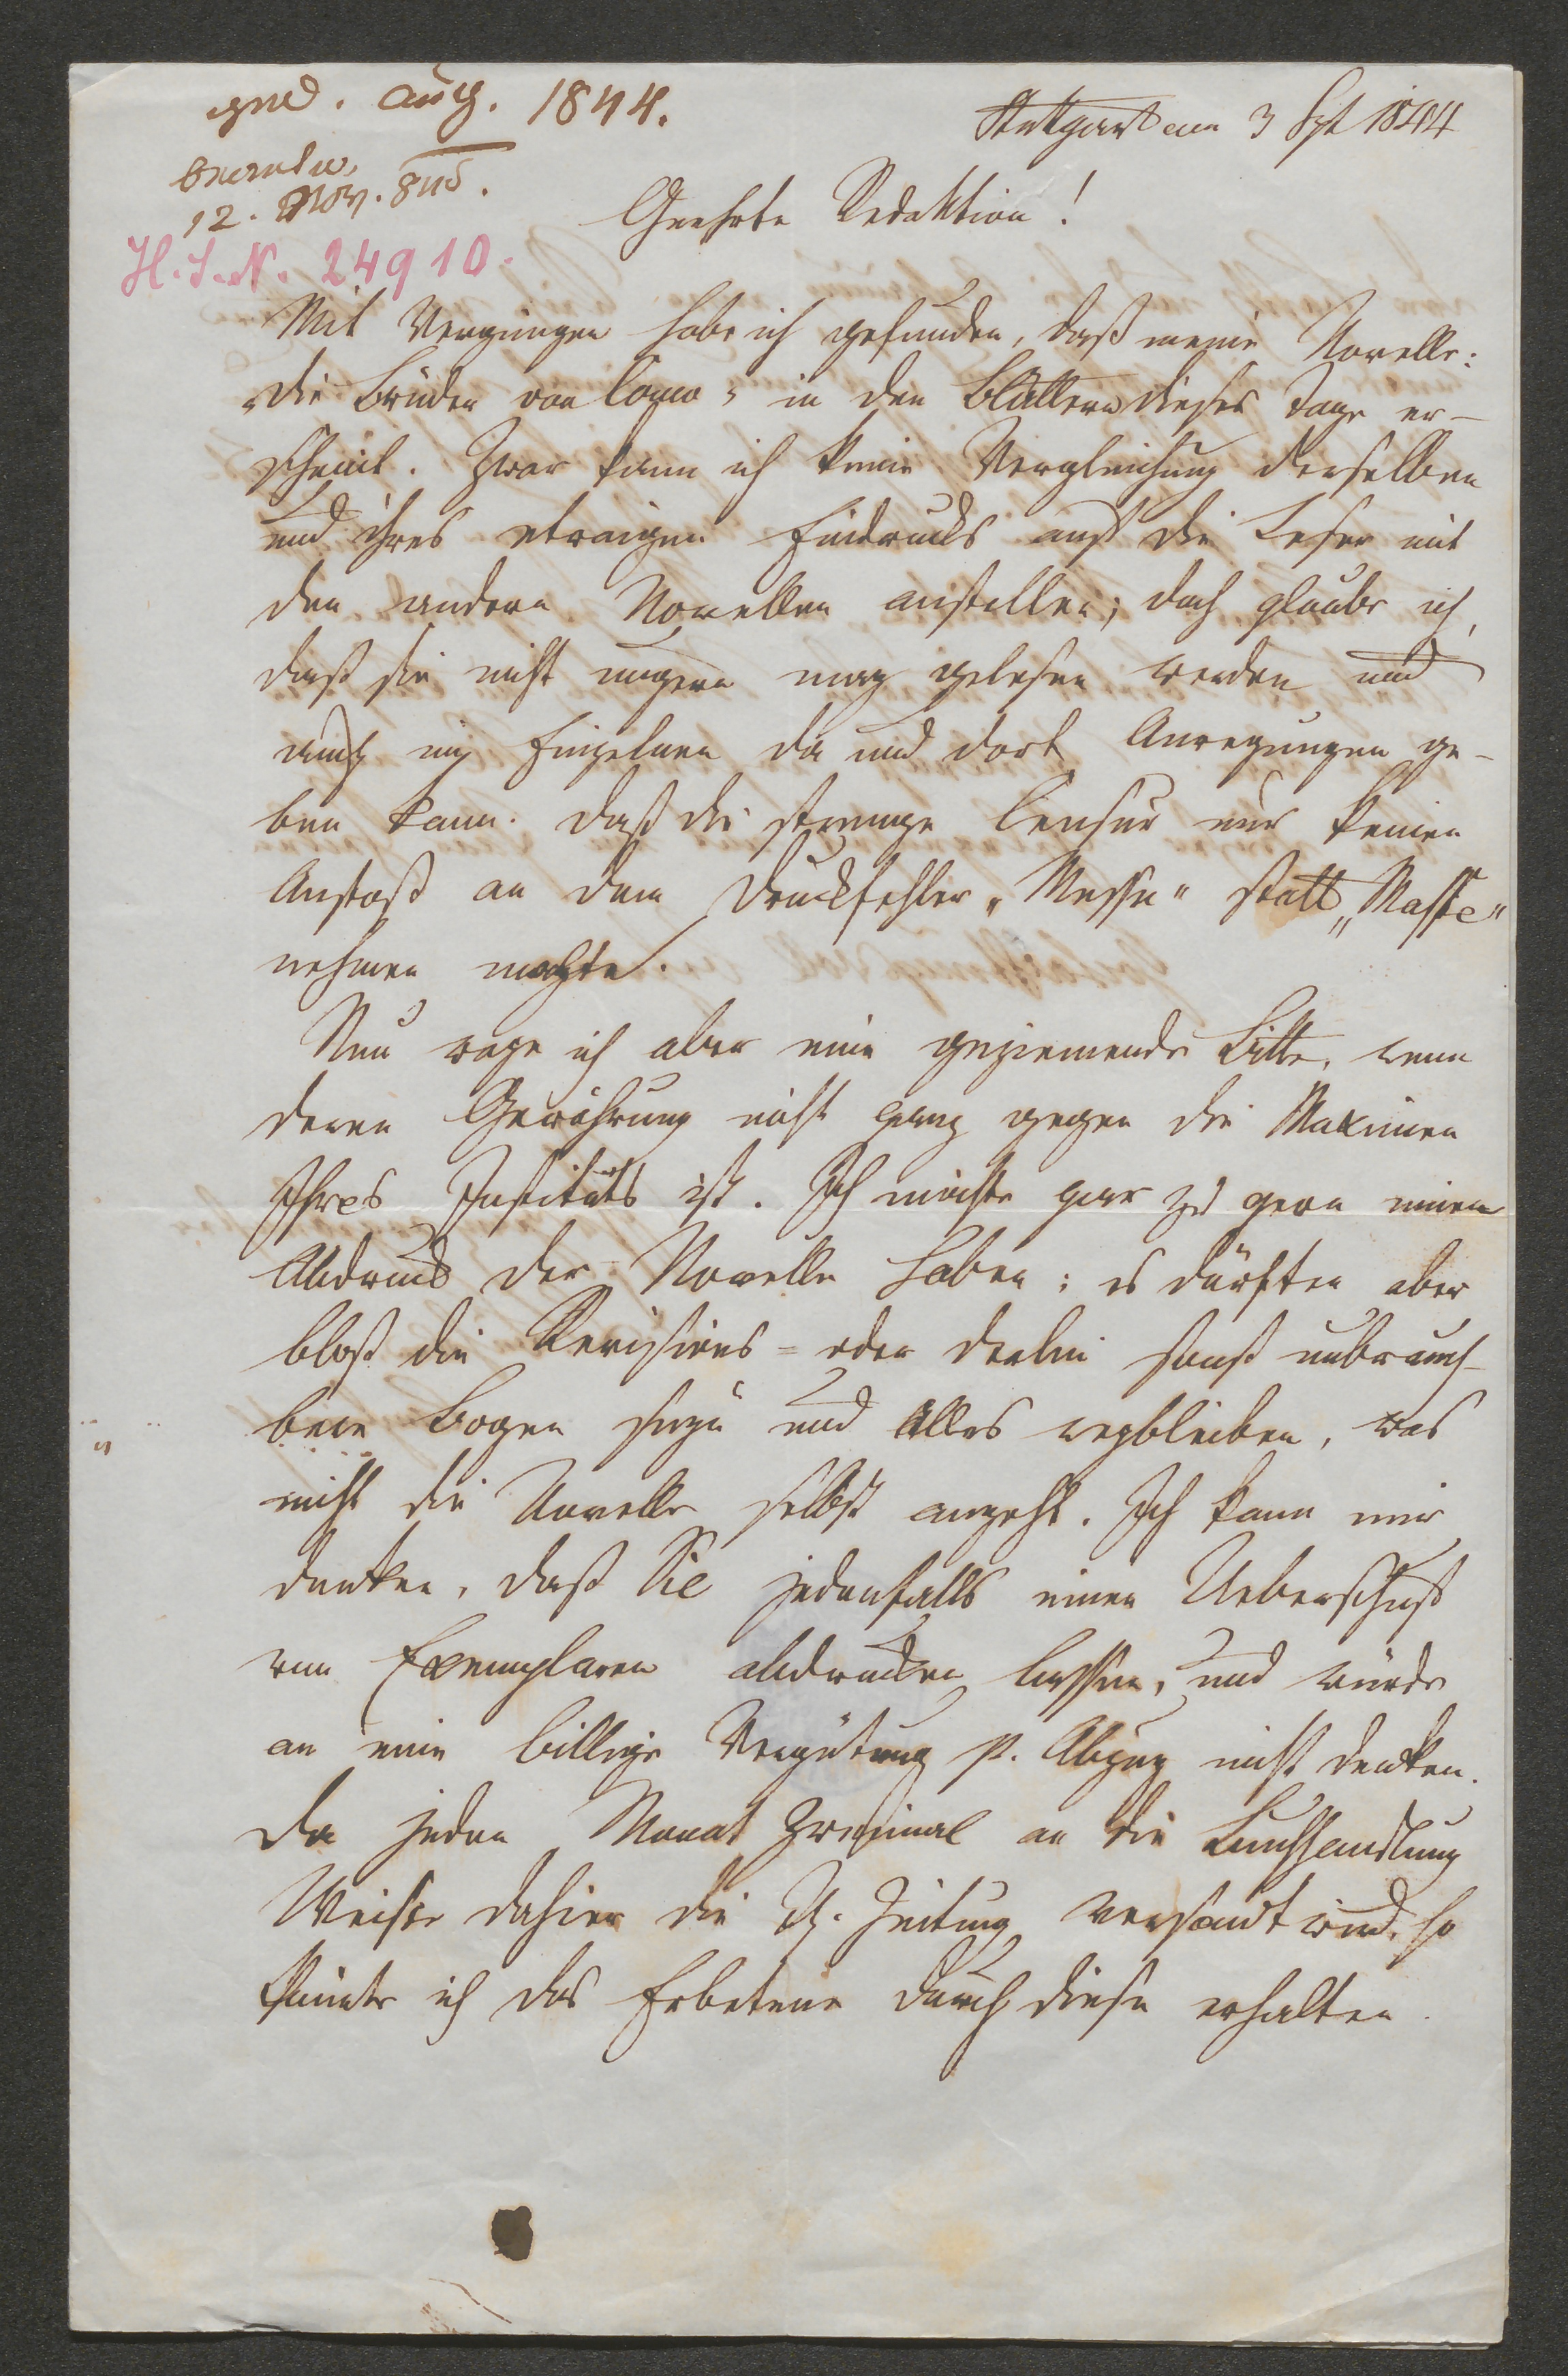 Aug. 1844.
Stuttgart am 3 Spt 1844
12. Nov. 845.
Geehrte Redaktion!
H.I.N. 24910.
Mit Vergnügen habe ich gefunden, daß meine Novelle:
„Die Brüder von Como“ in den Blättern dieser Tage er-
scheint. Zwar kann ich keine Vergleichung derselben
und ihres etwaigen Eindrucks auf die Leser mit
den andern Novellen anstellen; doch glaube ich,
daß sie nicht ungern mag gelesen werden und
auch im Einzelnen da und dort Anregungen ge-
ben kann. Daß die strenge Censur nur keinen
Anstoß an dem Druckfehler „Messe“ statt „Masse“
nehmen mochte.
Nun wage ich aber eine geziemende Bitte, wenn
deren Gewährung nicht ganz gegen die Maximen
Ihres Instituts ist. Ich möchte gar zu gern einen
Abdruck der Novelle haben; es dürften aber
bloß die Revisions- oder sonst unbrauch-
bare Bogen seyn und Alles wegbleiben, was
nicht die Novelle selbst angeht. Ich kann mir
denken, daß Sie jedenfalls einen Ueberschuß
von Exemplaren abdrucken lassen, und würde
an eine billige Vergütung p. Abzug nicht denken.
Da jeden Monat zweimal an die Buchhandlung
Weise dahier die Th. Zeitung versandt wird, so
könnte ich das Erbetene durch diese erhalten.